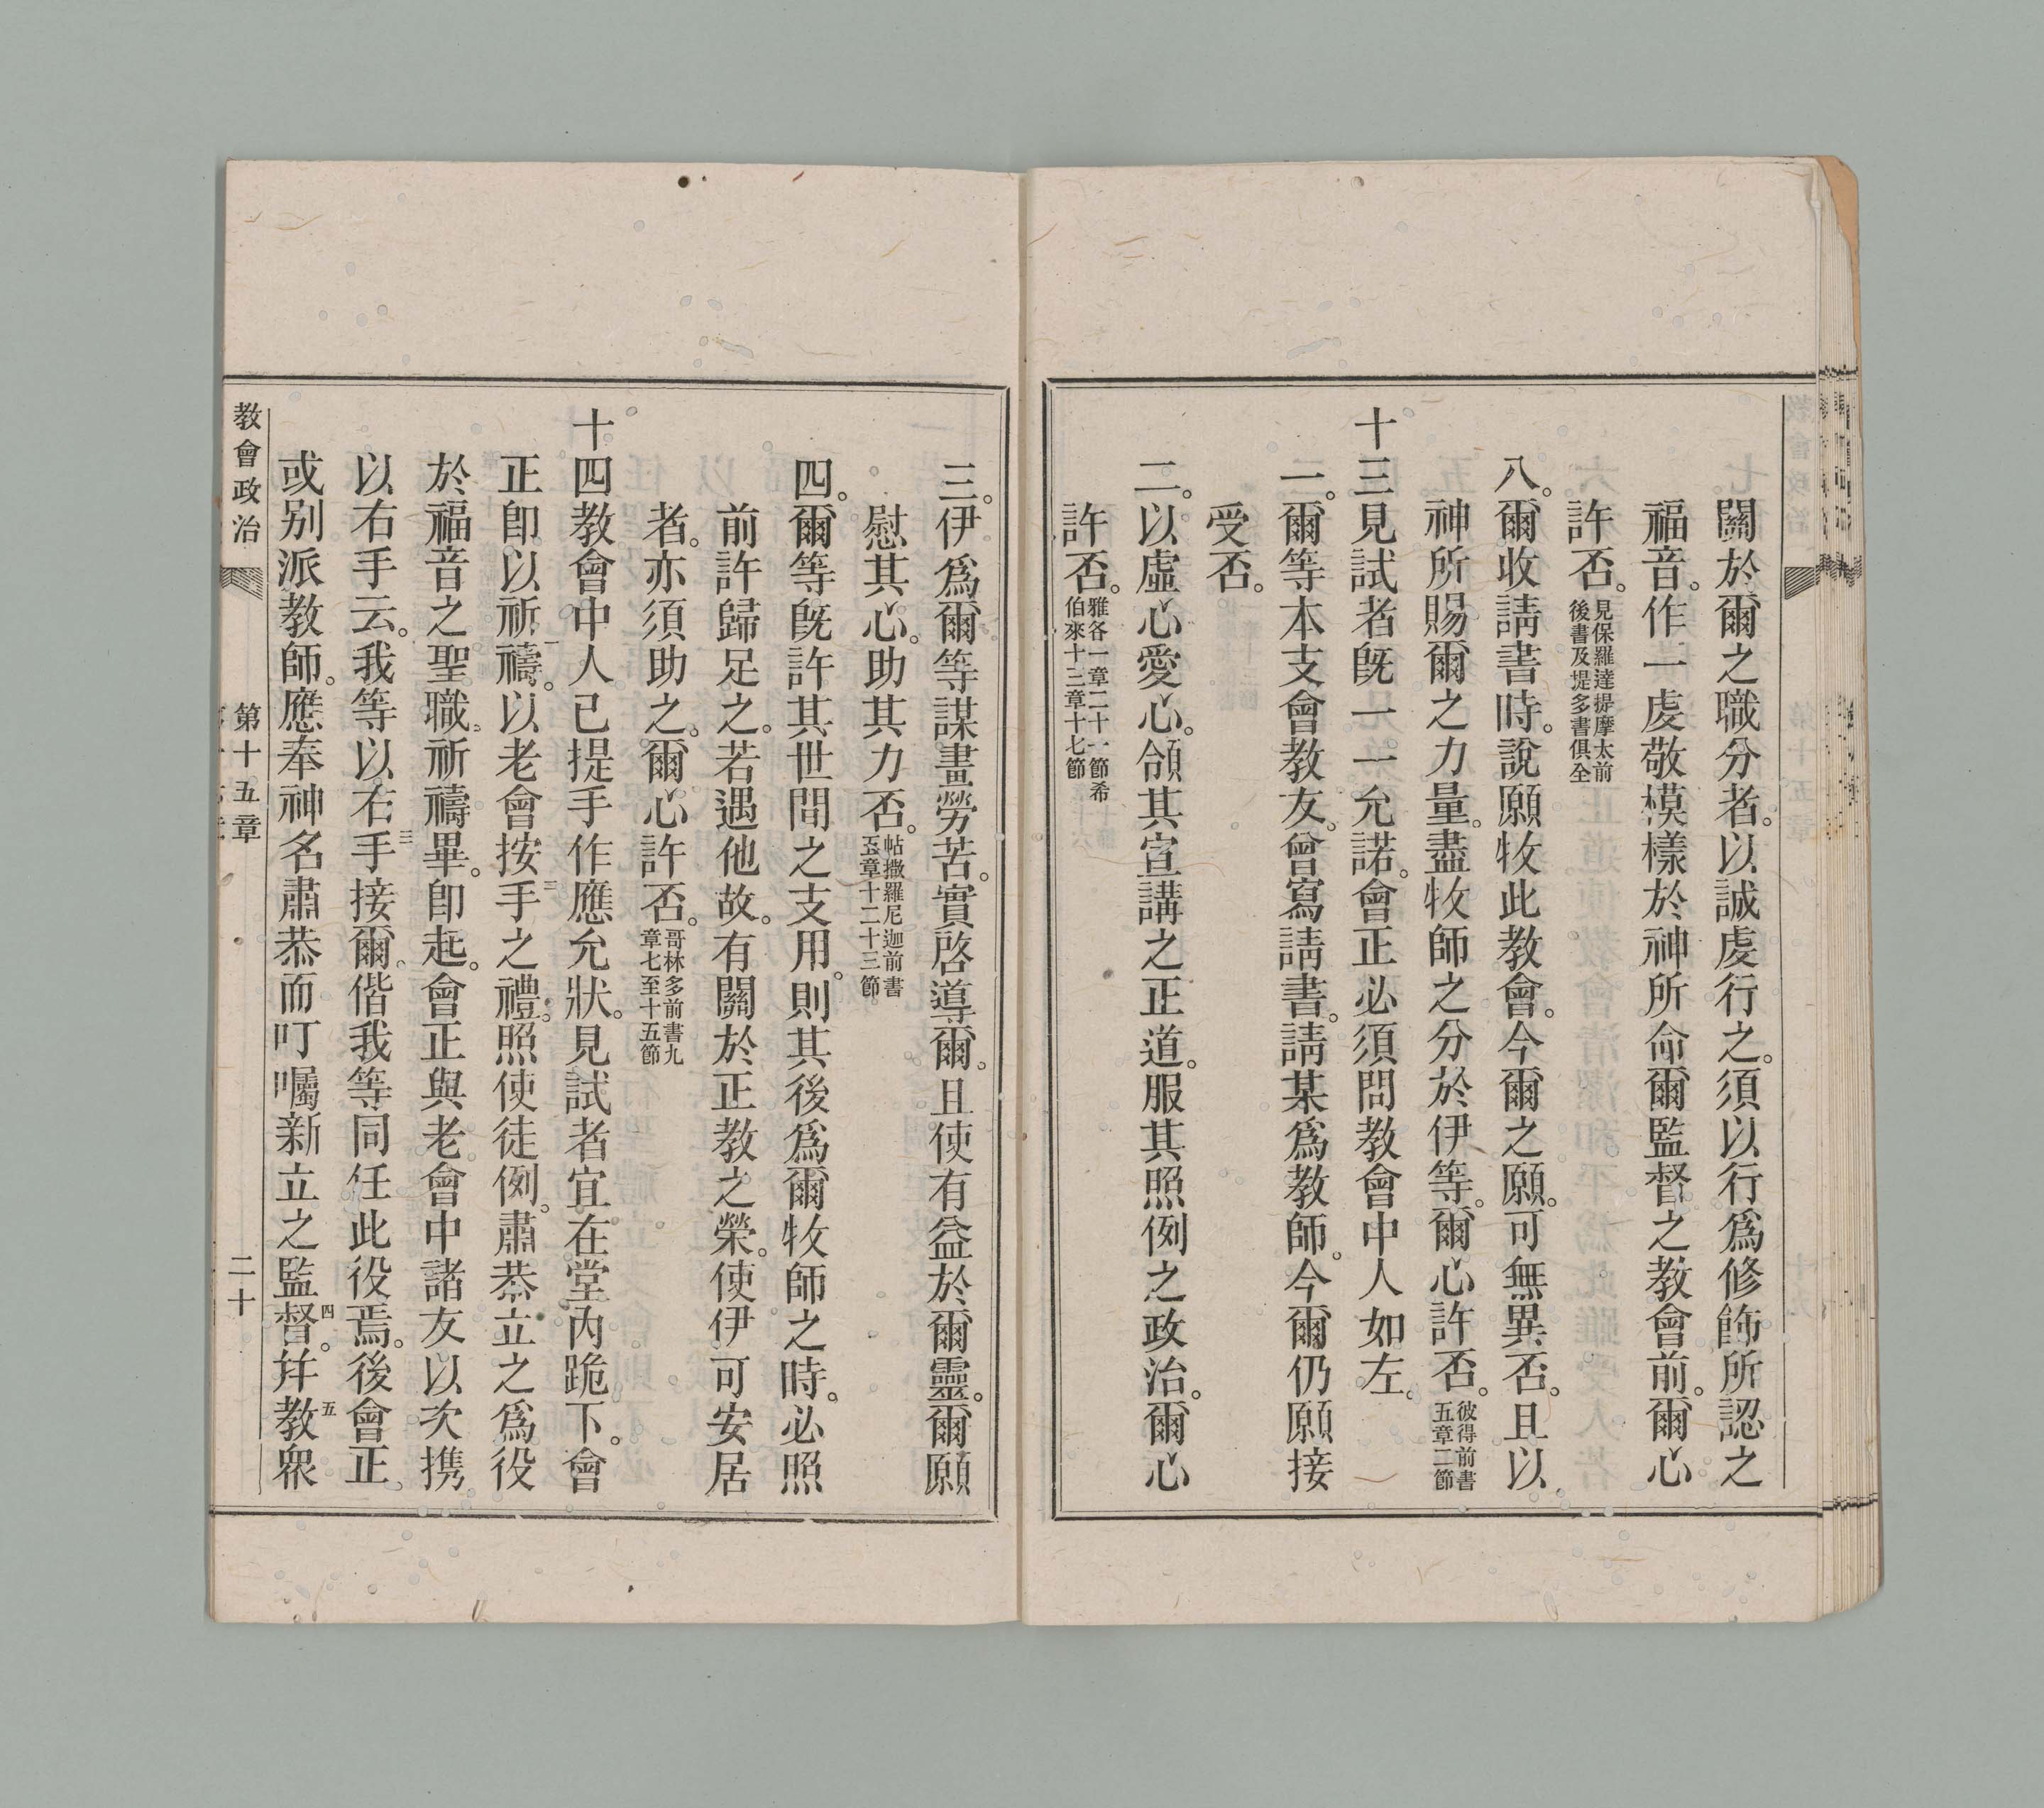 關於爾之職分者。以誠虔行之。須以行爲修飾所認之
福音。作一虔敬模樣於神所命爾監督之教會前。爾心
許否。見保羅達提摩太前
後書及提多書俱全
八。爾收請書時。說願牧此教會。今爾之願。可無異否。且以
神所賜爾之力量。盡牧師之分於伊等。爾心許否。彼得前書
五章二節
十三見試者旣一一允諾。會正必須問教會中人如左。
一。爾等本支會教友。曾寫請書。請某爲教師。今爾仍願接
受否。
二。以虛心愛心。領其宣講之正道。服其照例之政治。爾心
許否。雅各一章二十一節希
伯來十三章十七節
三。伊爲爾等謀畫勞苦。實啓導爾。且使有益於爾靈。爾願
慰其心。助其力否。帖撒羅尼迦前書
五章十二十三節。
四。爾等旣許其世間之支用。則其後爲爾牧師之時。必照
前許歸足之。若遇他故。有關於正教之榮。使伊可安居
者。亦須助之。爾心許否。哥林多前書九
章七至十五節
十四教會中人已提手作應允狀。見試者宜在堂內跪下。會
正卽以祈一禱。以老會按二手之禮。照使徒例。肅恭立之爲役
於福音之聖職。祈禱畢。卽起。會正與老會中諸友以次携
以右手云。我等以右三手接爾。偕我等同任此役焉。後會正
或别派教師。應奉神名肅恭而叮囑新立之監督四。幷教五衆
教會政治
第十五章
二十